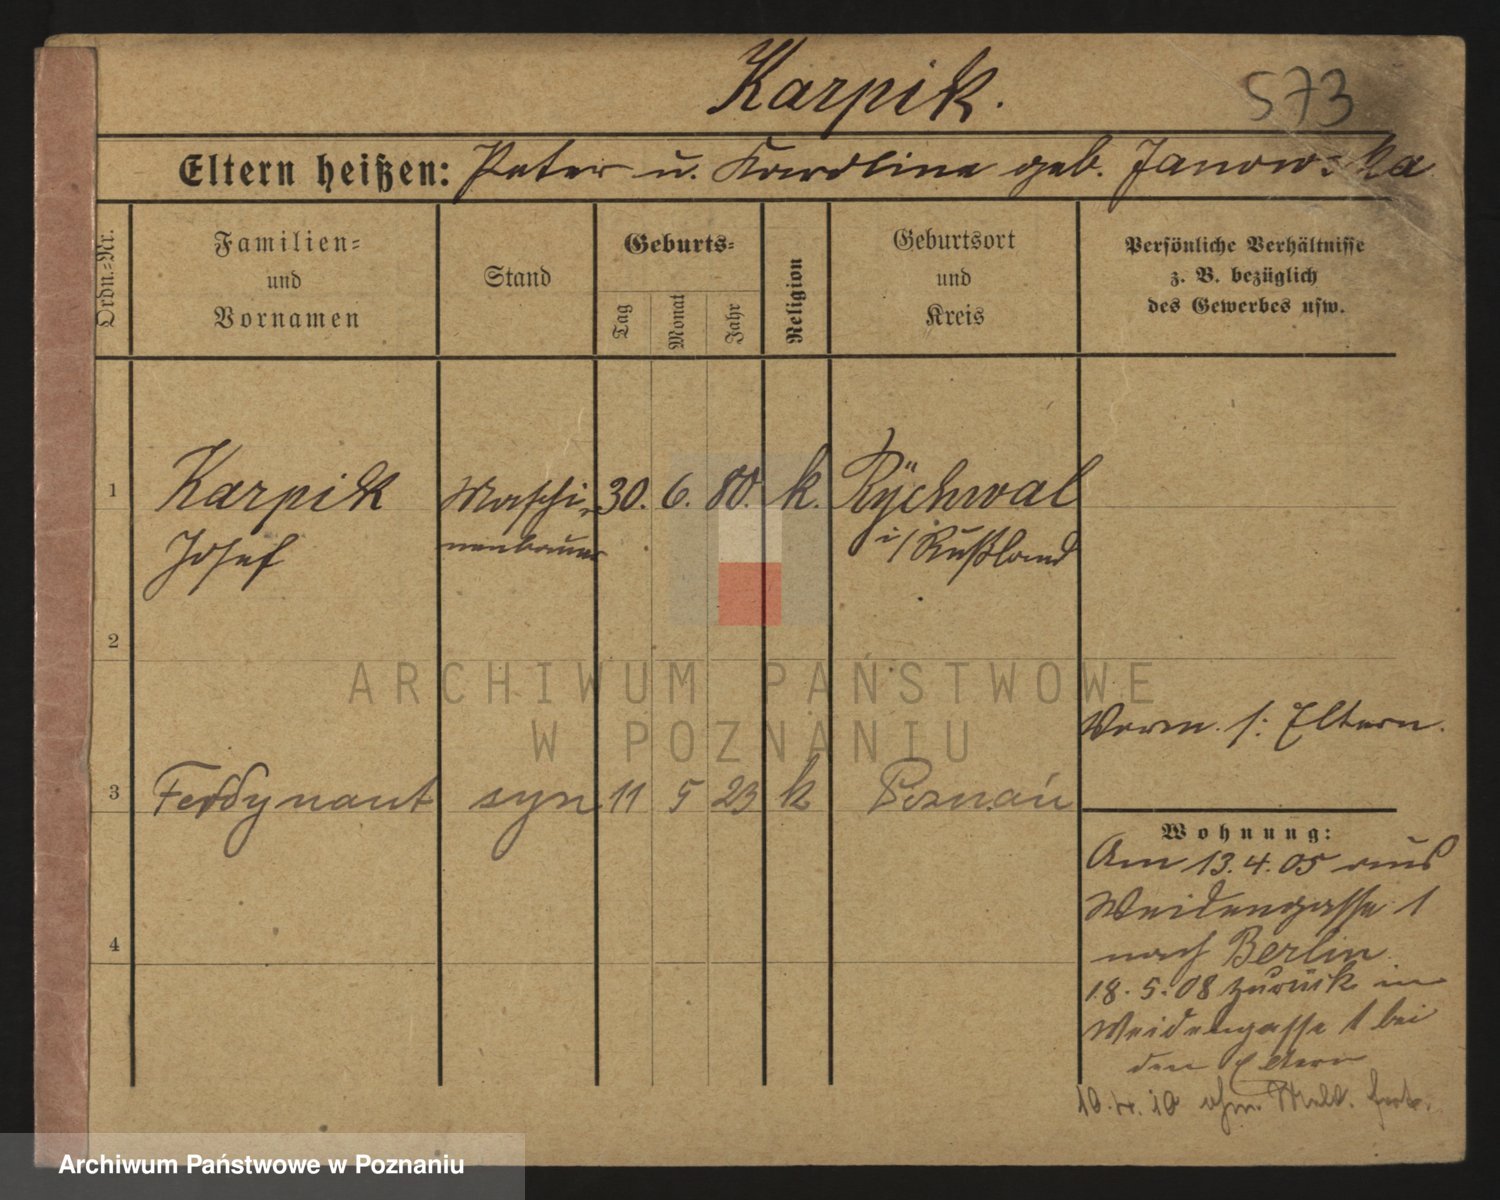 Karpik.
573
Eltern heißen: Peter u. Karoline geb. Janowska
Ordn.-Nr.
Familien-
und
Vornamen
Stand
Geburts-
Tag
Monat
Jahr
Religion
Geburtsort
und
Kreis
Persönliche Verhältnisse
z. B. bezüglich
des Gewerbes usw.
1 Karpik Maschi- 30. 6. 80. k. Rÿchwal
Josef nenbauer i/Rußland
2
ARCHIWUM PAŃSTWOWE
W POZNANIU
Vorm. s: Eltern.
3 Ferdynant syn 11 5 23 k Poznań
Wohnung:
Am 13.4.05 aus
Weidengasse 1
nach Berlin
18.5.08 zurück in
Weidengasse 1 bei
den Eltern
4
10.4.10 ohne Meld. fort.
Archiwum Państwowe w Poznaniu